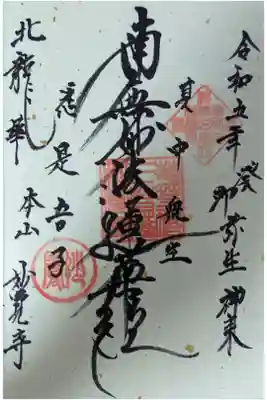 令和五年 癸卯弥生
其中衆生
南無妙法蓮華経
悉是吾子
北龍華 本山 妙覚寺